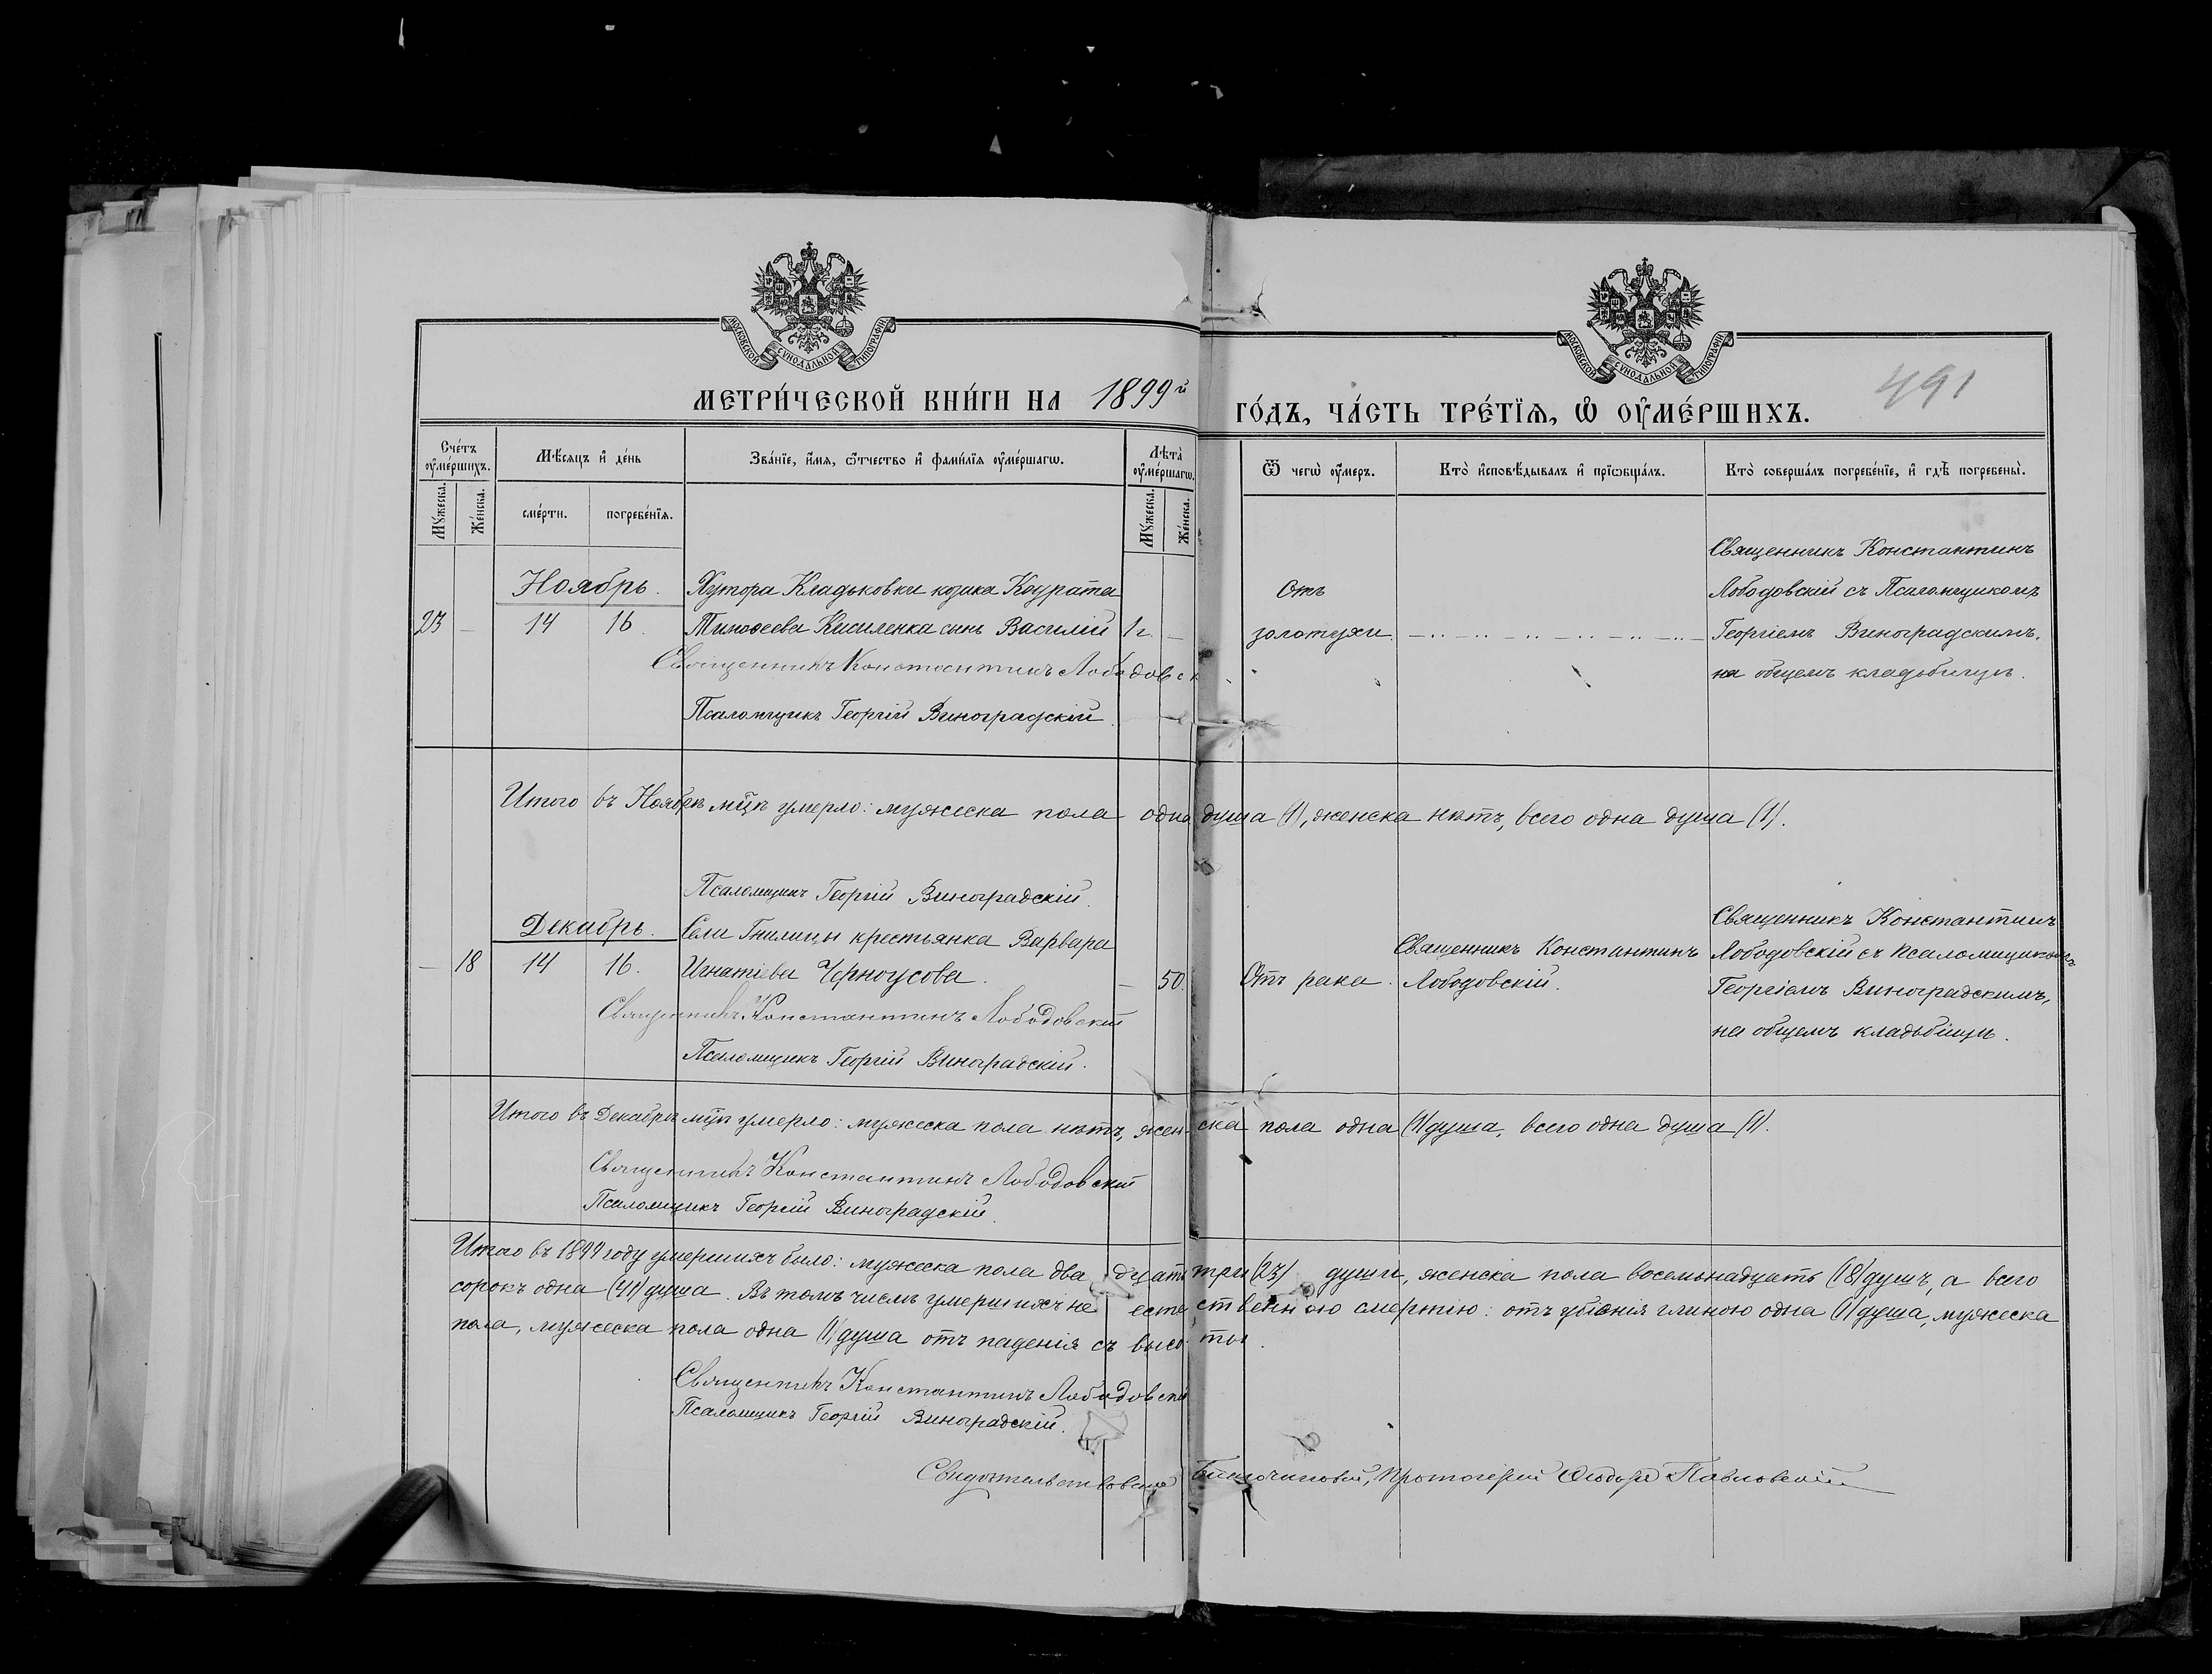 МОСКОВСКОЙ СѴНОДАЛЬНОЙ ТИПОГРАФІИ
МОСКОВСКОЙ СѴНОДАЛЬНОЙ ТИПОГРАФІИ
МЕТРИ́ЧЕСКОЙ КНИ́ГИ НА 1899й
ГО́ДЪ, ЧА́СТЬ ТРЕ́ТЇѦ, Ѡ҆ ОУ҆МЕ́РШИХЪ.
491
Сче́тъ оу҆ме́ршихъ.
Мꙋ́жеска.
Же́нска.
Мѣ́сяцъ и҆ де́нь
сме́рти.
погребе́нїѧ.
Зва́нїе, и҆́мѧ, ѻ҆́тчество и҆ фами́лїѧ оу҆ме́ршагѡ.
Лѣта̀ оу҆ме́ршагѡ.
Мꙋ́жеска.
Же́нска.
Ѿ чегѡ̀ оу҆́меръ.
Кто̀ и҆сповѣ́дывалъ и҆ прїѡбща́лъ.
Кто̀ соверша́лъ погребе́нїе, и҆ гдѣ̀ погребены̀.
Ноябрь.
Хутора Кладьковки козака
23 — 14 16.
Тимоѳеева Кисиленка сынъ Василій 1 г. —
Священникъ Константинъ Лободовск
Псаломщикъ Георгій Виноградскій
Отъ
золотухи.
Священникъ Константинъ
Лободовскій съ Псаломщикомъ
Георгіемъ Виноградскимъ,
на общемъ кладбищѣ.
Итого въ Ноябрѣ мцѣ умерло: мужеска пола одна душа (1), женска нѣтъ, всего одна душа (1).
Псаломщикъ Георгій Виноградскій.
Декабрь.
Села Гнилицы крестьянка Варвара
— 18 14 16.
Игнатіева Черноусова. — 50.
Священникъ Константинъ Лободовскій
Псаломщикъ Георгій Виноградскій.
Отъ рака.
Священникъ Константинъ
Лободовскій.
Священникъ Константинъ
Лободовскій съ Псаломщикомъ
Георгіемъ Виноградскимъ,
на общемъ кладбищѣ.
Итого въ Декабрѣ мцѣ умерло: мужеска пола нѣтъ, женска пола одна (1) душа, всего одна душа (1).
Священникъ Константинъ Лободовскій
Псаломщикъ Георгій Виноградскій.
Итого въ 1899 году умершихъ было: мужеска пола двадцать три (23) души, женска пола восемьнадцать (18) душъ, а всего
сорокъ одна (41) душа. Въ томъ числѣ умершихъ не естественною смертію: отъ убіенія глиною одна (1) душа, мужеска
пола, мужеска пола одна (1) душа отъ паденія съ высоты.
Священникъ Константинъ Лободовскій
Псаломщикъ Георгій Виноградскій.
Свидѣтельствовалъ Благочинный, Протоіерей Ѳеодоръ Павловскій